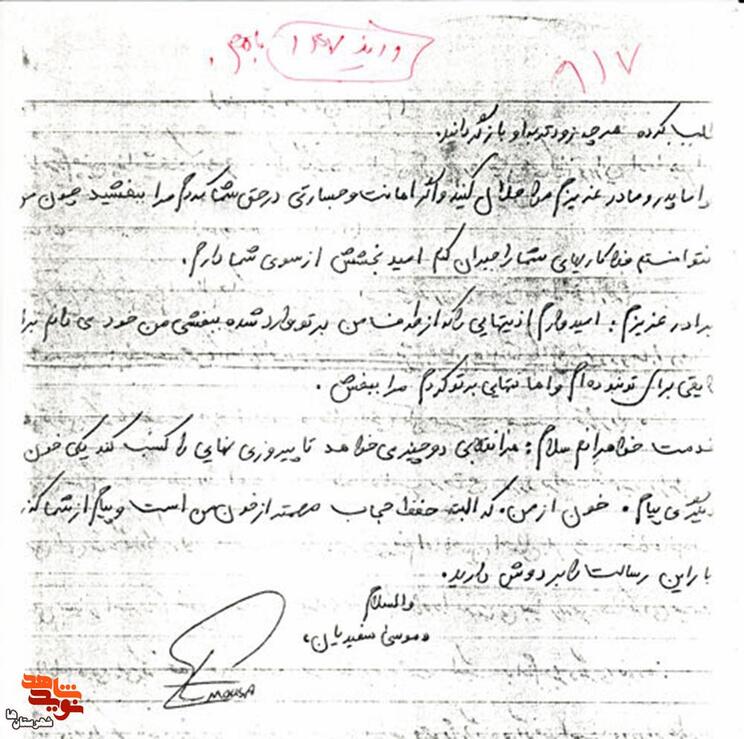 واریز ۱۴۷ با هم
۹۱۷
طلب کرده هرچه زودتر به او بازگردانید.
و اما پدر و مادر عزیزم مرا حلال کنید و اگر اهانت و جسارتی در حق شما کردم مرا ببخشید چون من
نتوانستم فداکاریهای شما را جبران کنم امید بخشش از سوی شما دارم.
برادر عزیزم: امیدوارم اذیتهایی را که از طرف من بر تو وارد شده ببخشی من خود می دانم
لایقی برای تو نبوده ام و اهانتهایی بر تو کردم مرا ببخش.
خدمت خواهرانم سلام: هر انقلابی دو چیز می خواهد تا پیروزی نهایی را کسب کند یکی خون
دیگری پیام. خون از من. که البته حفظ حجاب مهمتر از خون من است و پیام از شما که
بار این رسالت را بر دوش دارید.
والسلام
«موسی سفیدیان»
MOUSA
نوید شاهد
شهرستان‌ها